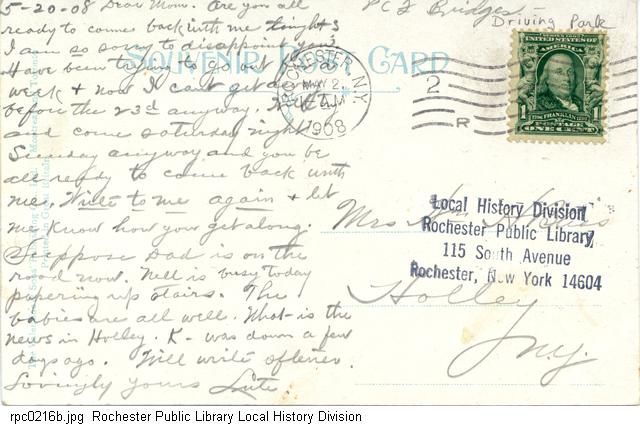 5-20-08 Dear Mom. Are you all
ready to come back with me tonight?
I am so sorry to disappoint you.
Have been trying to go out
week & now I can't get down
before the 23rd anyway.
and come saturday night
Sunday anyway and you be
all ready to come back with
me. Write to me again & let
me know how you get along.
Suppose Dad is on the
road now. Nell is busy today
papering up stairs. The
babies are all well. What is the
news in Holley. K- was down a few
days ago. Will write oftener.
Lovingly yours Lute.
PC Z Bridges-
Driving Park
SOUVENIR POST CARD
ROCHESTER, N.Y.
MAY 2
AM
1908
2
R
SERIES 1902
UNITED STATES OF
AMERICA
1 FRANKLIN 1
POSTAGE
ONE CENT
Mrs
Holley
N.Y.
Local History Division
Rochester Public Library
115 South Avenue
Rochester, New York 14604
rpc0216b.jpg Rochester Public Library Local History Division